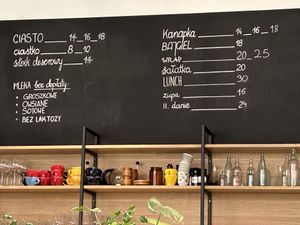 CIASTO 14_16_18
ciastko 8_10
słoik deserowy 14
MLEKA bez dopłaty:
• GROSZKOWE
• OWSIANE
• SOJOWE
• BEZ LAKTOZY
Kanapka 14_16_18
BAJGIEL 18
WRAP 20_25
sałatka 20
LUNCH 30
zupa 16
II. danie 24